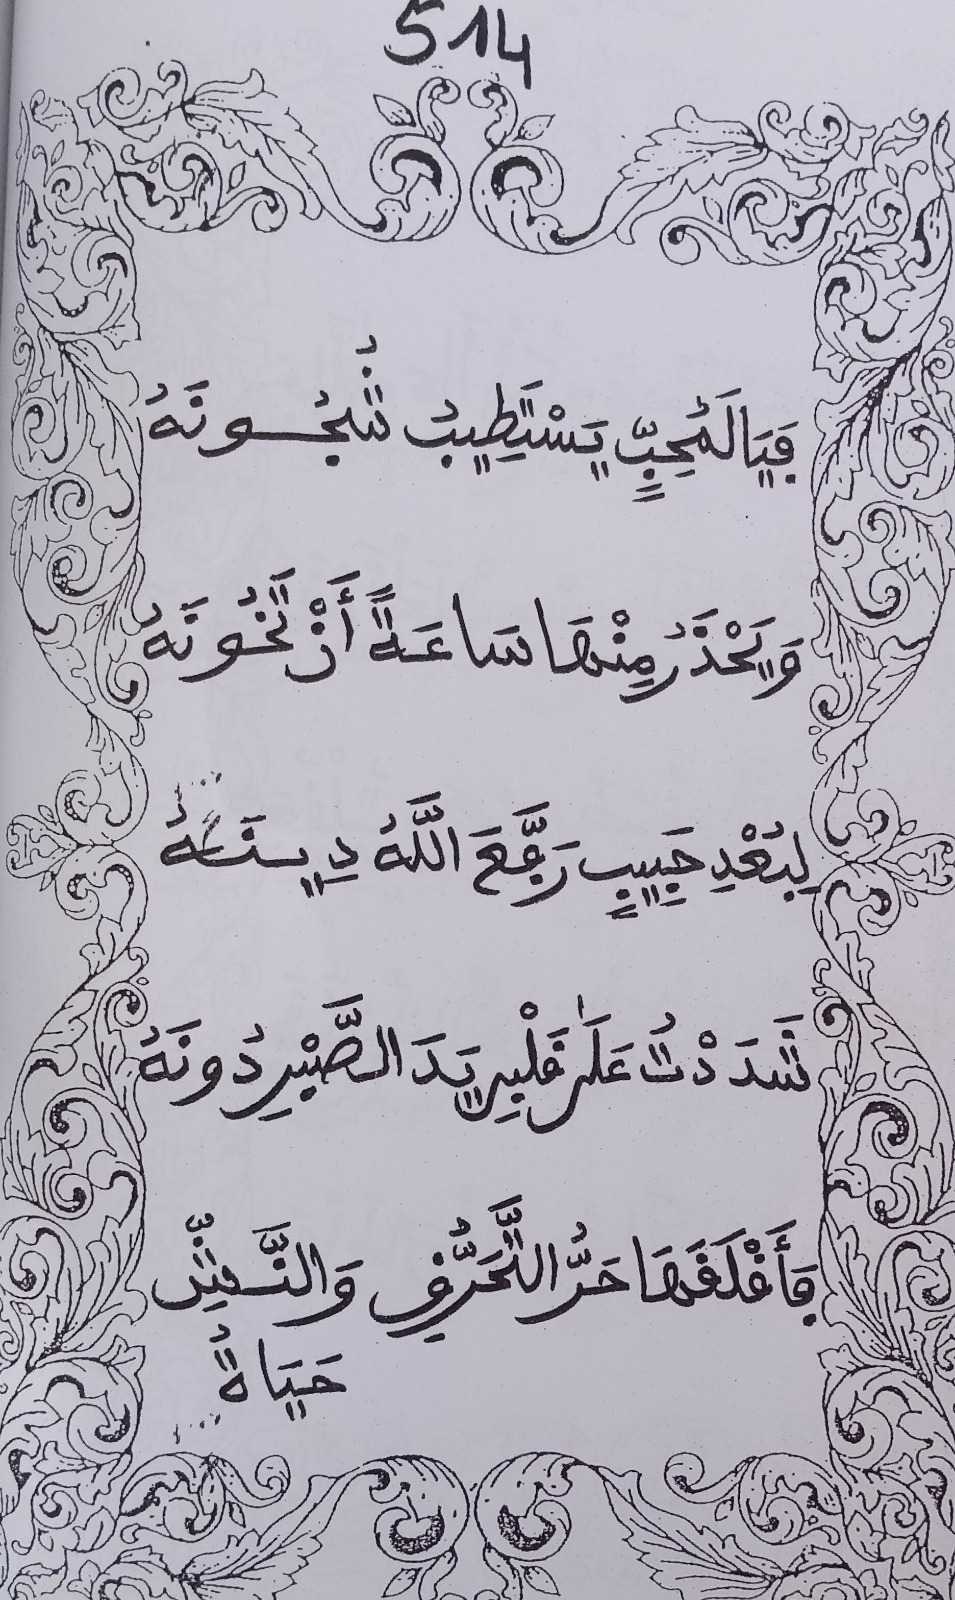 514
فَيَا لَمُحِبٍّ يَسْتَطِيبُ شُجُونَهُ
وَيَحْذَرُ مِنْهَا سَاعَةً أَنْ تَخُونَهُ
لِبُعْدِ حَبِيبٍ رَفَّعَ اللَّهُ دِينَهُ
شَدَدْتُ عَلَى قَلْبِي يَدَ الصَّبْرِ دُونَهُ
فَأَقْلَقَهَا حَرُّ التَّحَرُّقِ وَالنَّشْرِ
حَيَاةُ